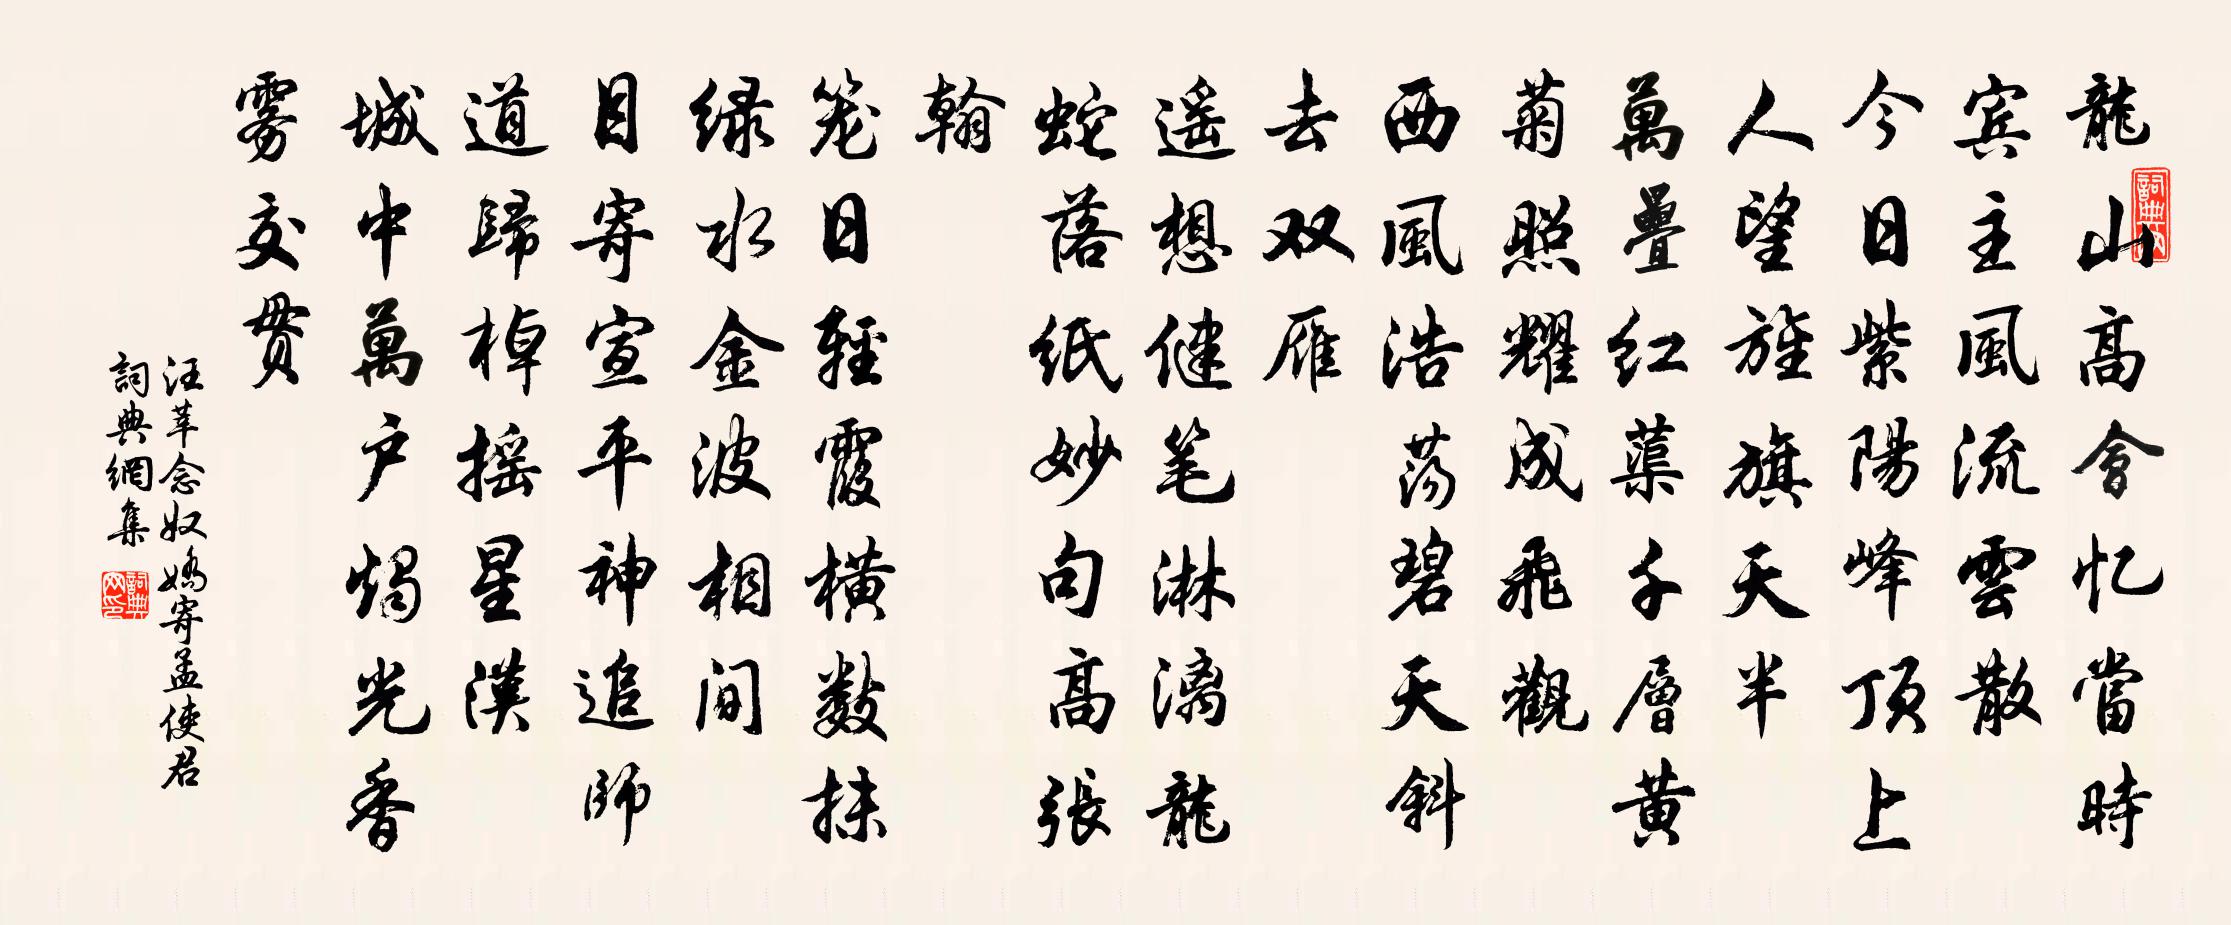 龍山高會忆當時
宾主風流雲散
今日紫陽峰顶上
人望旌旗天半
萬疊红蕖千層黄
菊照耀成飛觀
西風浩荡碧天斜
去双雁
遥想健笔淋漓龍
蛇落纸妙句高張
翰
笼日輕霞横数抹
绿水金波相间
目寄宣平神追师
道歸棹摇星漢
城中萬户烛光香
雾交贯
汪莘念奴嬌寄孟使君
詞典網集